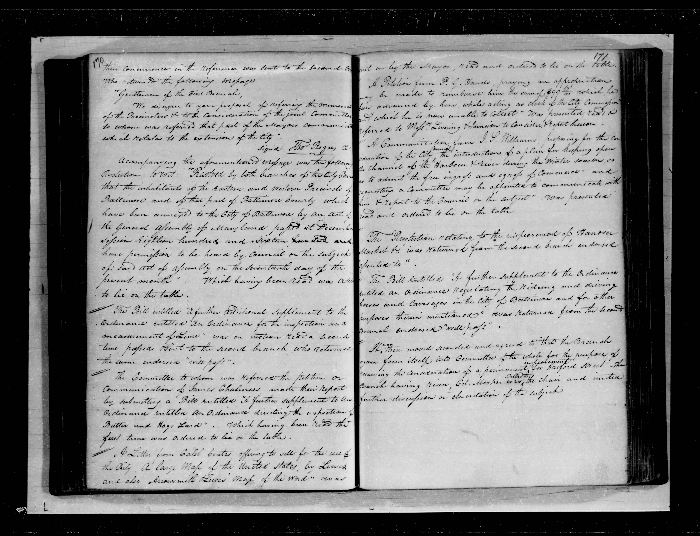 170
their concurrence in the reference was sent to the second
who the following message
"Gentlemen of the First Branch,
We do agree to your proposal of referring the
of the to the consideration of the joint Committee
to whom was referred that part of the Mayors communication
which relates to the extension of the City"
signed Thos.
Accompanying the aforementioned message was the following
resolution to wit. "Resolved by both branches of the City
that the inhabitants of the Eastern and western Precincts of
Baltimore and of that part of Baltimore County which
have been annexed to the City of Baltimore by an Act of
the General Assembly of Maryland passed at December
session Eighteen hundred and Sixteen and
have permission to be heard by Council on the subject
of said act of assembly on the Seventeenth day of the
present month" Which having been read was
to lie on the table.
The Bill entitled a further additional Supplement to the
Ordinance entitled An Ordinance for the inspection and
measurement of was on motion read a second
time passed & sent to the second branch who returned
the same endorsed "will pass".
The Committee to whom was referred the petition or
Communication of James made their report
by submitting a Bill entitled "A further supplement to an
Ordinance entitled An Ordinance directing the inspection of
Butter and Hogs Lard". Which having been read the
first time was ordered to lie on the table.
A Letter from Caleb offering to sell for the use of
the City A large Map of the United States, by
and also Arrowsmith & Lewis' Map of the World was
171
sent in by the Mayor read and ordered to lie on the table
A Petition from P. praying an appropriation
be made to reimburse him the sum of which he
advanced by him whilst acting as clerk of the City Commissioners
and which he is now unable to collect" Was presented read &
referred to Messrs. to consider & report thereon.
A Communication from J. S. Williams proposing for the
of the City the introduction of a plan for keeping open
the channel of the Harbour & river during the Winter season so
as to admit of the free ingress and egress of Commerce and
requesting a Committee may be appointed to communicate with
him & report to the Council on the subject" Was presented
read and ordered to lie on the table
The Resolution relating to the improvement of Hanover
Market &c was returned from the second branch endorsed
"assented to".
The Bill entitled "A further supplement to the Ordinance
entitled an Ordinance regulating the Riding and driving
horses and Carriages in the City of Baltimore and for other
purposes therein mentioned" was returned from the second
branch endorsed "will pass"
It was moved seconded and agreed to that the Branch
now form itself into Committee of the whole for the purpose of
the consideration of a permanent improvement in Oxford Street. The
branch having risen, Col. Mosher the chair and invited
further discussion or elucidation of the subject